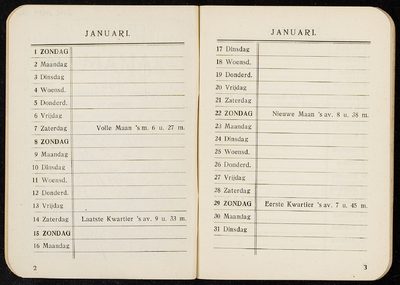 JANUARI.
1 ZONDAG
2 Maandag
3 Dinsdag
4 Woensd.
5 Donderd.
6 Vrijdag
7 Zaterdag Volle Maan 's m. 6 u. 27 m.
8 ZONDAG
9 Maandag
10 Dinsdag
11 Woensd.
12 Donderd.
13 Vrijdag
14 Zaterdag Laatste Kwartier 's av. 9 u. 33 m.
15 ZONDAG
16 Maandag
2
JANUARI.
17 Dinsdag
18 Woensd.
19 Donderd.
20 Vrijdag
21 Zaterdag
22 ZONDAG Nieuwe Maan 's av. 8 u. 38 m.
23 Maandag
24 Dinsdag
25 Woensd.
26 Donderd.
27 Vrijdag
28 Zaterdag
29 ZONDAG Eerste Kwartier 's av. 7 u. 45 m.
30 Maandag
31 Dinsdag
3